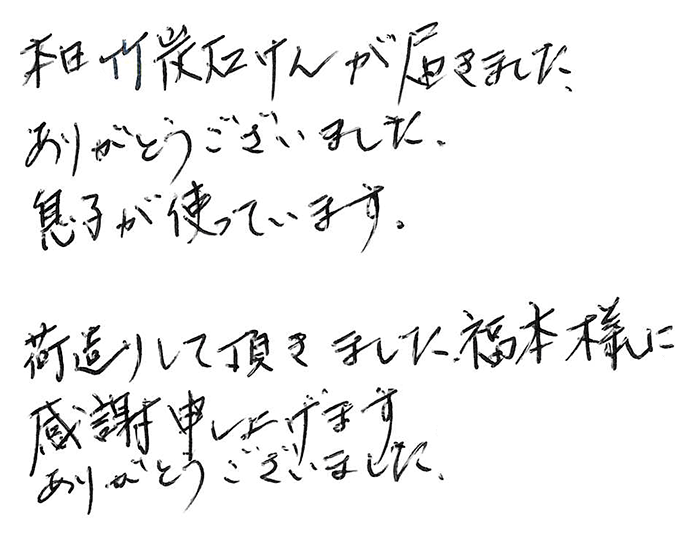 本日竹炭石けんが届きました、
ありがとうございました、
息子が使っています。
荷造りして頂きました、福本様に
感謝申し上げます
ありがとうございました、